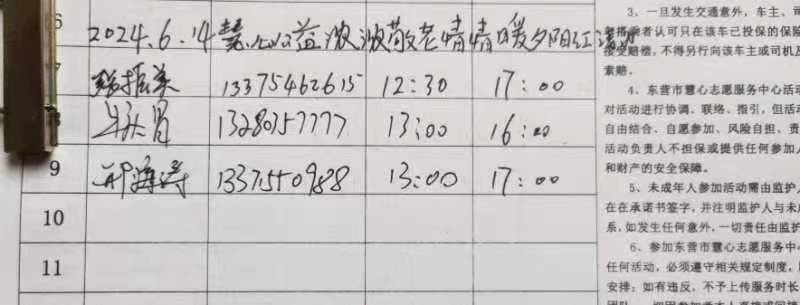 2024.6.14慧心公益浓浓敬老情情暖夕阳红活动
13375462615 12:30 17:00
13280357777 13:00 16:00
9 邢海涛 13375540988 13:00 17:00
10
11
3、一旦发生交通意外，车主、司
者认可只在该车已投保的保险
接受赔偿，不得另行向该车主或司机及
索赔。
4、东营市慧心志愿服务中心活动
对活动进行协调、联络、指引，但活动
自由结合、自愿参加、风险自担、责
活动负责人不担保或提供任何参加人
和财产的安全保障。
5、未成年人参加活动需由监护人
在在承诺书签字，并注明监护人与未成
系，如发生任何意外，一切责任由监护
6、参加东营市慧心志愿服务中心
任何活动，必须遵守相关规定制度，
安排；如有违反，不予上传服务时长